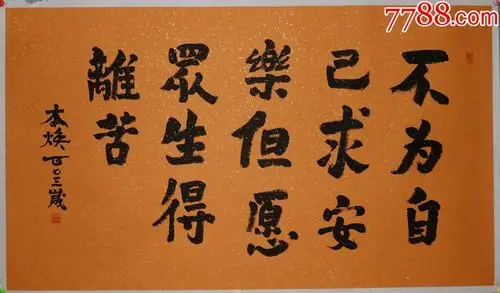 7788.com
不为自
己求安
樂但愿
眾生得
離苦
本焕百〇三歲